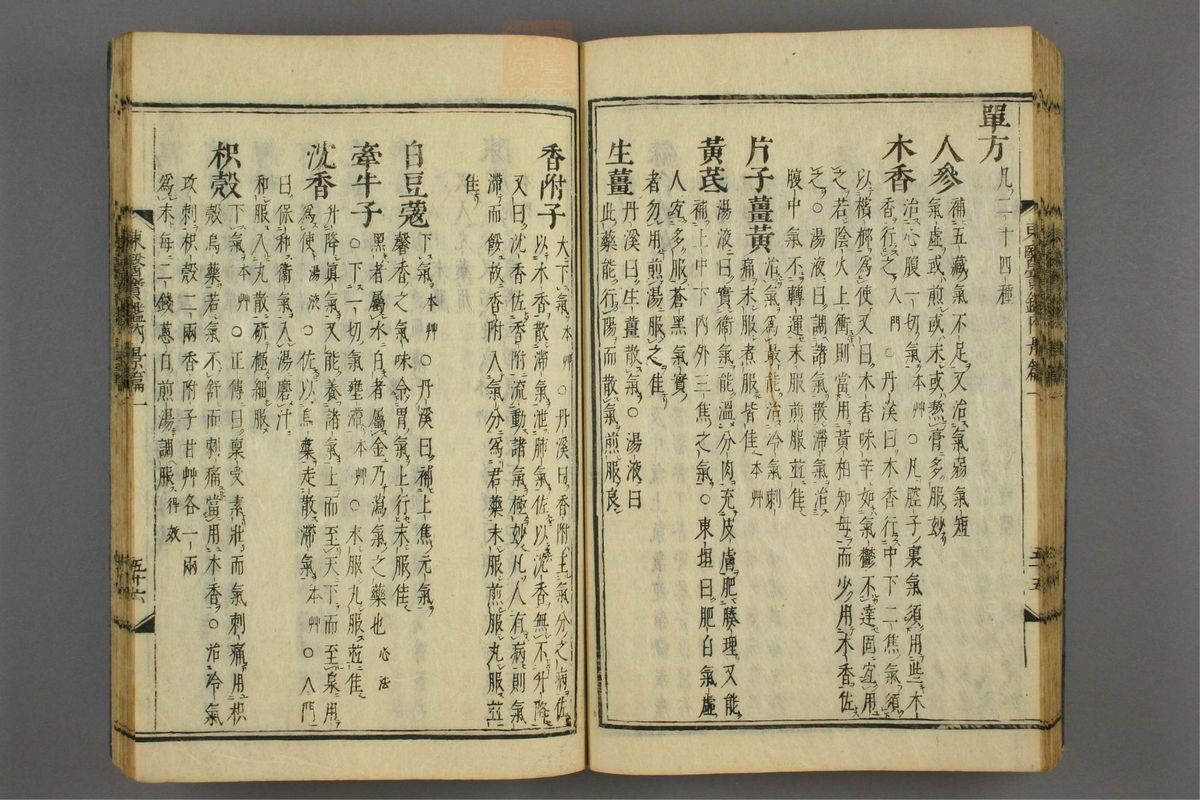 單方凡二十四種
人參補五藏氣不足又治氣弱氣短
氣虛或煎或末或熬膏多服妙
木香治心腹一切氣本艸○凡腔子裏氣須用些木
香行之入門○丹溪曰木香行中下二焦氣須
以檳榔爲使又曰木香味辛如氣鬱不達固宜用
之若陰火上衝則當用黃柏知母而少用木香佐
之○湯液曰調諸氣散滯氣治
腹中氣不轉運末服煎服並佳
片子薑黃治氣爲最能治冷氣刺
痛末服煮服皆佳本艸
黃芪湯液曰實衛氣能溫分肉充皮膚肥腠理又能
補上中下內外三焦之氣○東垣曰肥白氣虛
人宜多服蒼黑氣實
者勿用煎湯服之佳
生薑丹溪曰生薑散氣○湯液曰
此藥能行陽而散氣煎服良
香附子大下氣本艸○丹溪曰香附主氣分之病佐
以木香散滯氣泄肺氣佐以沈香無不升降
又曰沈香佐香附流動諸氣極妙凡人有病則氣
滯而餒故香附入氣分爲君藥末服煎服丸服並
佳
白豆蔲下氣本艸○丹溪曰補上焦元氣
馨香之氣味令胃氣上行末服佳
牽牛子黑者屬水白者屬金乃瀉氣之藥也心法
○下一切氣壅滯本艸○末服丸服並佳
沈香升降眞氣又能養諸氣上而至天下而至泉用
爲使湯液○佐以烏藥走散滯氣本艸○入門
曰保和衛氣入湯磨汁
和服入丸散硏極細服
枳殼下氣本艸○正傳曰稟受素壯而氣刺痛用枳
殼烏藥若氣不舒而刺痛當用木香○治冷氣
攻刺枳殼二兩香附子甘艸各一兩
爲末每二錢葱白煎湯調服得效
東醫寶鑑內景篇一
五十六